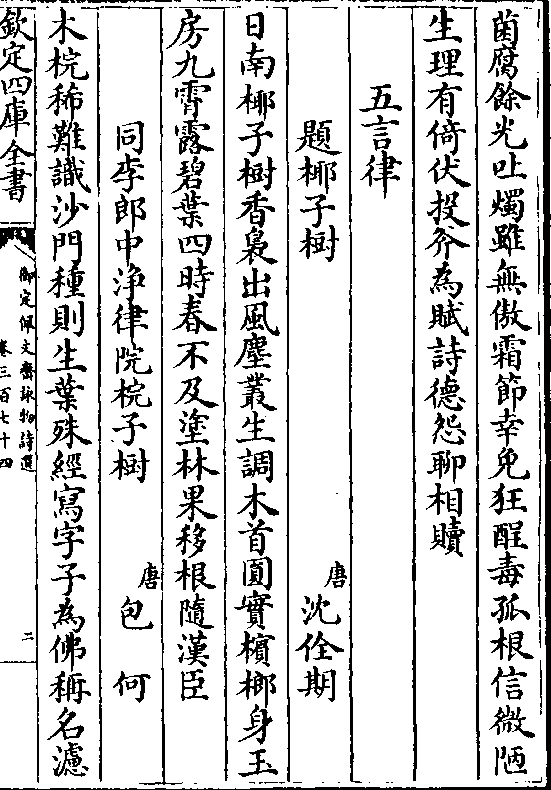 菌腐餘光吐燭雖無傲霜節幸免狂酲毒孤根信微陋
生理有倚伏投斧為賦詩德怨聊相贖
五言律
題椰子樹
唐 沈佺期
日南椰子樹香裊出風塵叢生調木首圓實檳榔身玉
房九霄露碧葉四時春不及塗林果移根隨漢臣
同李郎中浄律院梡子樹
唐 包何
木梡稀難識沙門種則生葉殊經寫字子為佛稱名濾
欽定四庫全書
御定佩文齋詠物詩選
卷三百七十四
二